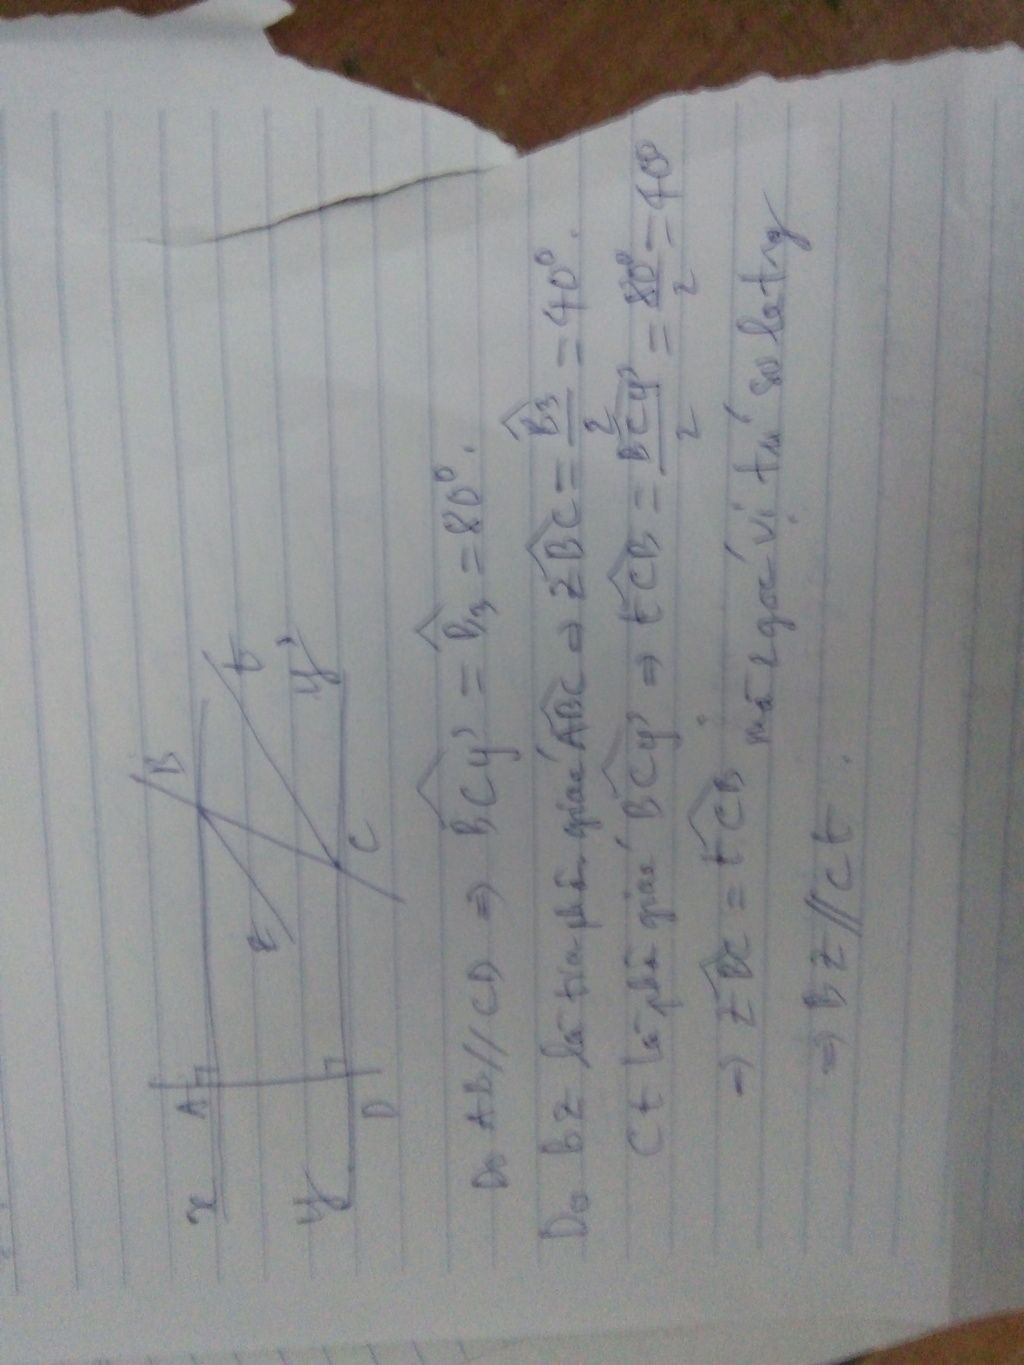 x A B
z t
y D C y'
Do AB // CD ⇒ BCy' = B₃ = 80⁰.
Do Bz là tia phân giác ABC ⇒ zBC = B₃/2 = 40⁰.
Ct là phâ giác BCy' ⇒ tCB = BCy'/2 = 80⁰/2 = 40⁰
⇒ zBC = tCB
mà 2 góc ví trí so le trg
⇒ Bz // Ct.